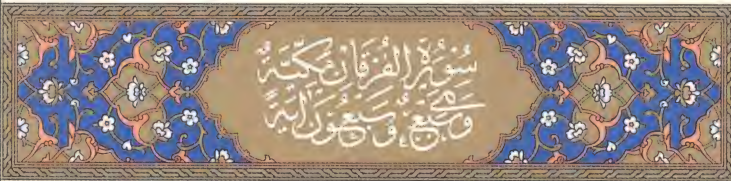 سُورَةُ الفُرْقَانِ مَكِّيَّةٌ
وَهِيَ سَبْعٌ وَسَبْعُونَ آيَةً